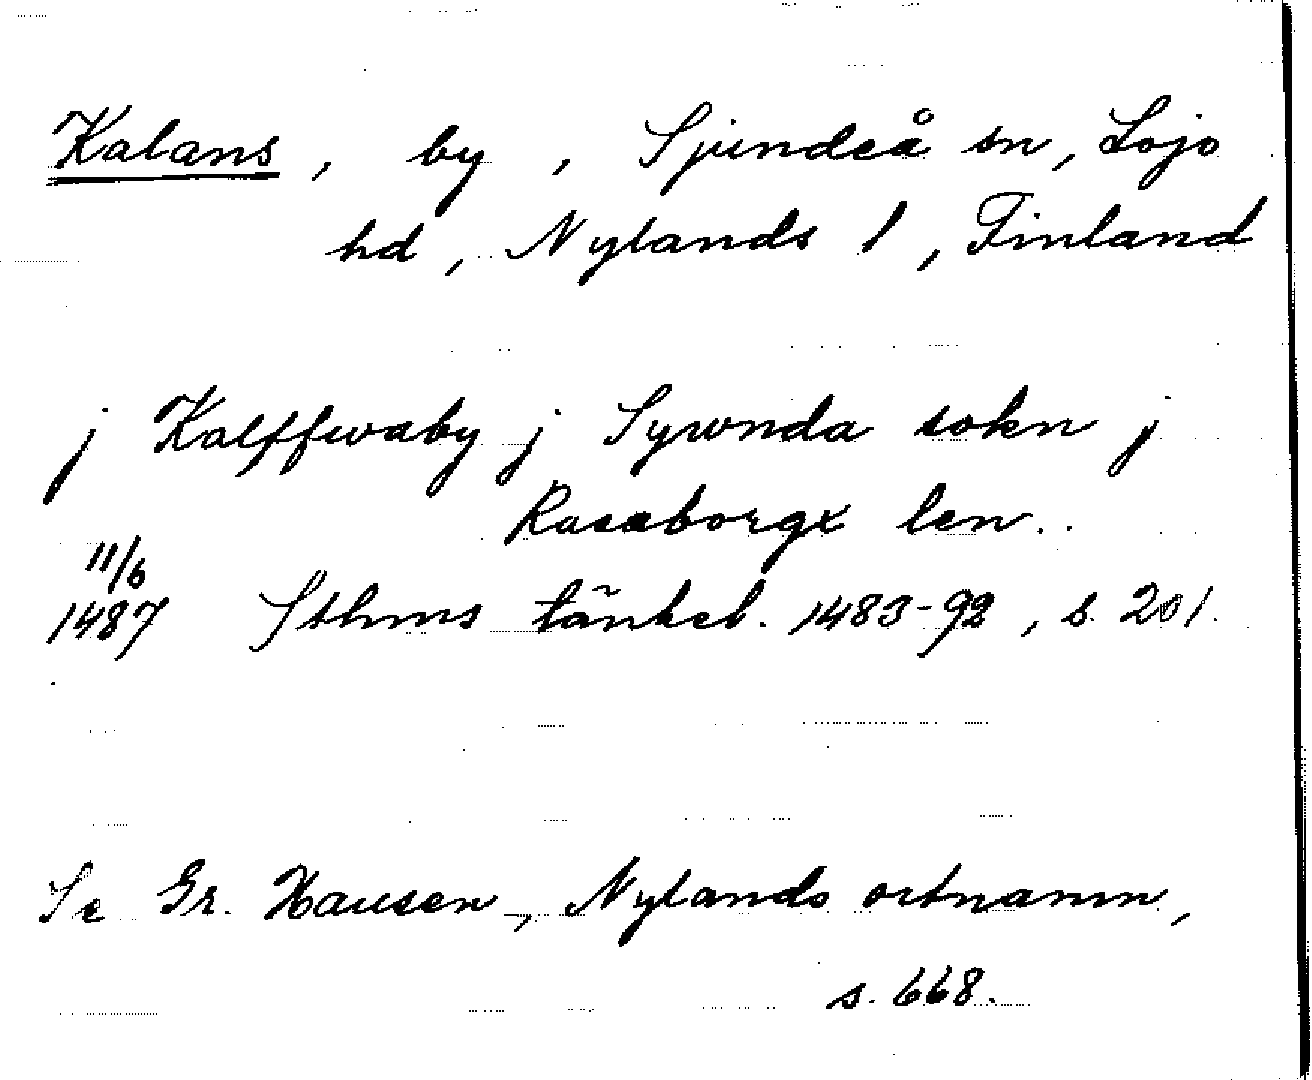 Kalans, by, Sjundeå sn, Lojo
hd, Nylands l, Finland
j Kalffwaby j Sywnda sokn j
Rasaborgx len..
11/6
1487 Sthms tänkeb. 1483-92, s. 201.
Se Gr. Hausen, Nylands ortnamn,
s. 668.